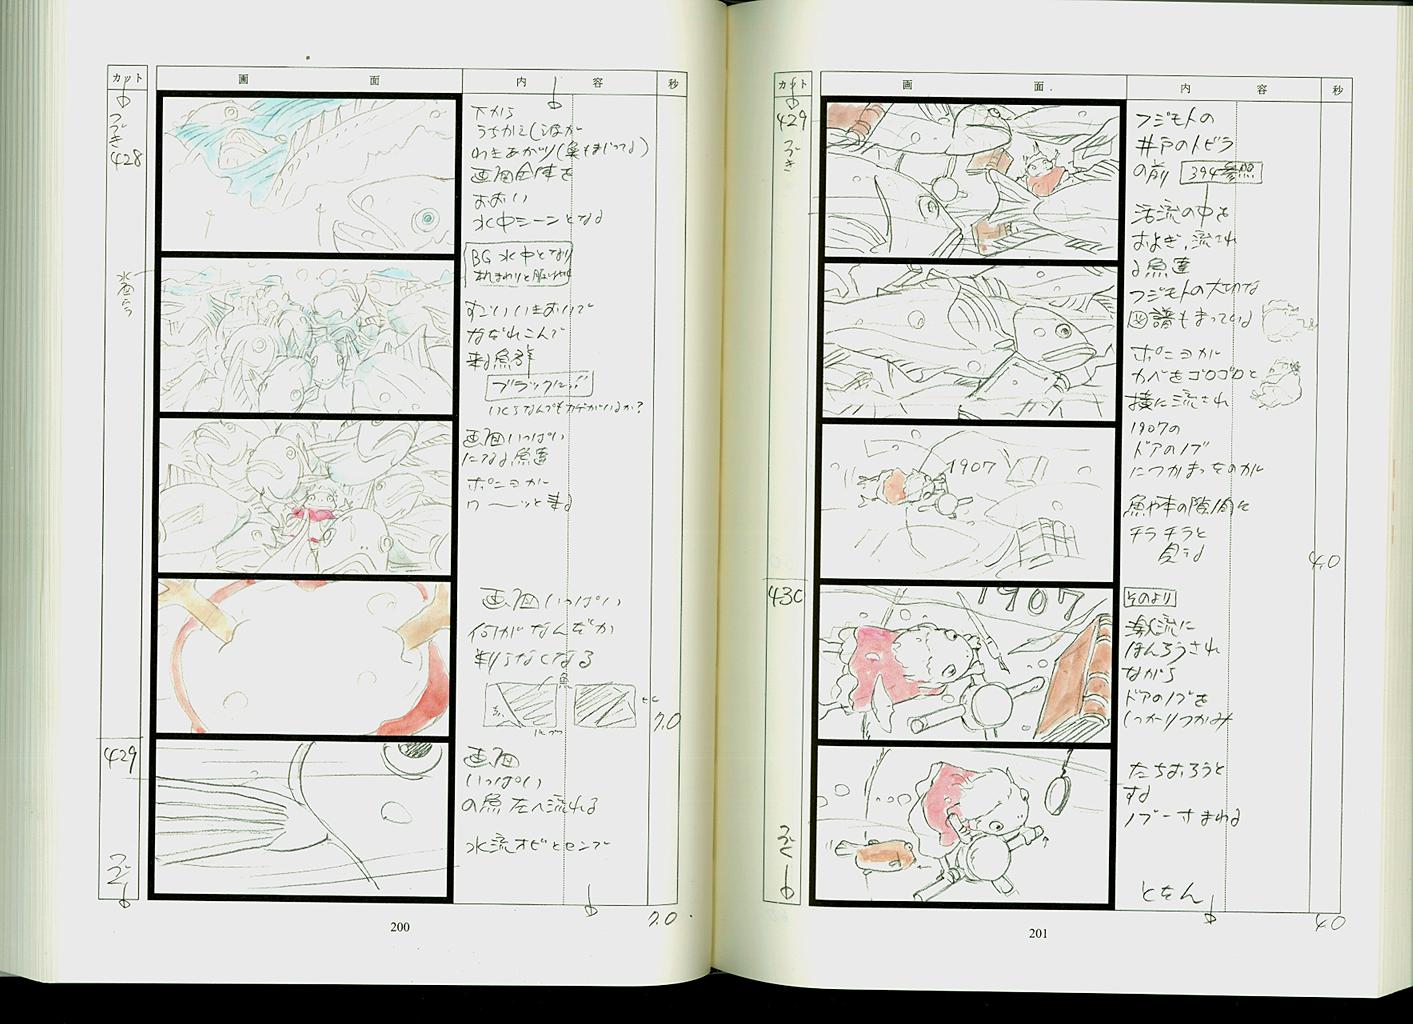 カット
画 面
内 容
秒
つづき
428
下から
画面全体を
おおい
水中シーンとなる
BG 水中となり
すごいいきおいで
なだれこんで
来る魚群
画面いっぱい
になる魚達
ポニョが
ワーーッと来る
画面いっぱい
何がなんだか
判らなくなる
魚
7.0
429
画面
いっぱい
の魚 左へ流れる
水流オビとセンで
つづく
7.0
200
カット
画 面
内 容
秒
429
つづき
フジモトの
井戸のトビラ
の前 394参照
およぎ、流され
る魚達
フジモトの大切な
図譜もまっている
ポニョが
カベをゴロゴロと
横に流され
1907の
ドアのノブ
につかまったのが
魚や本の隙間に
チラチラと
見える
1907
4.0
430
そのより
激流に
ほんろうされ
ながら
ドアのノブを
しっかりつかみ
1907
たちおろうと
する
ノブ一寸まわる
とたん
つづく
4.0
201